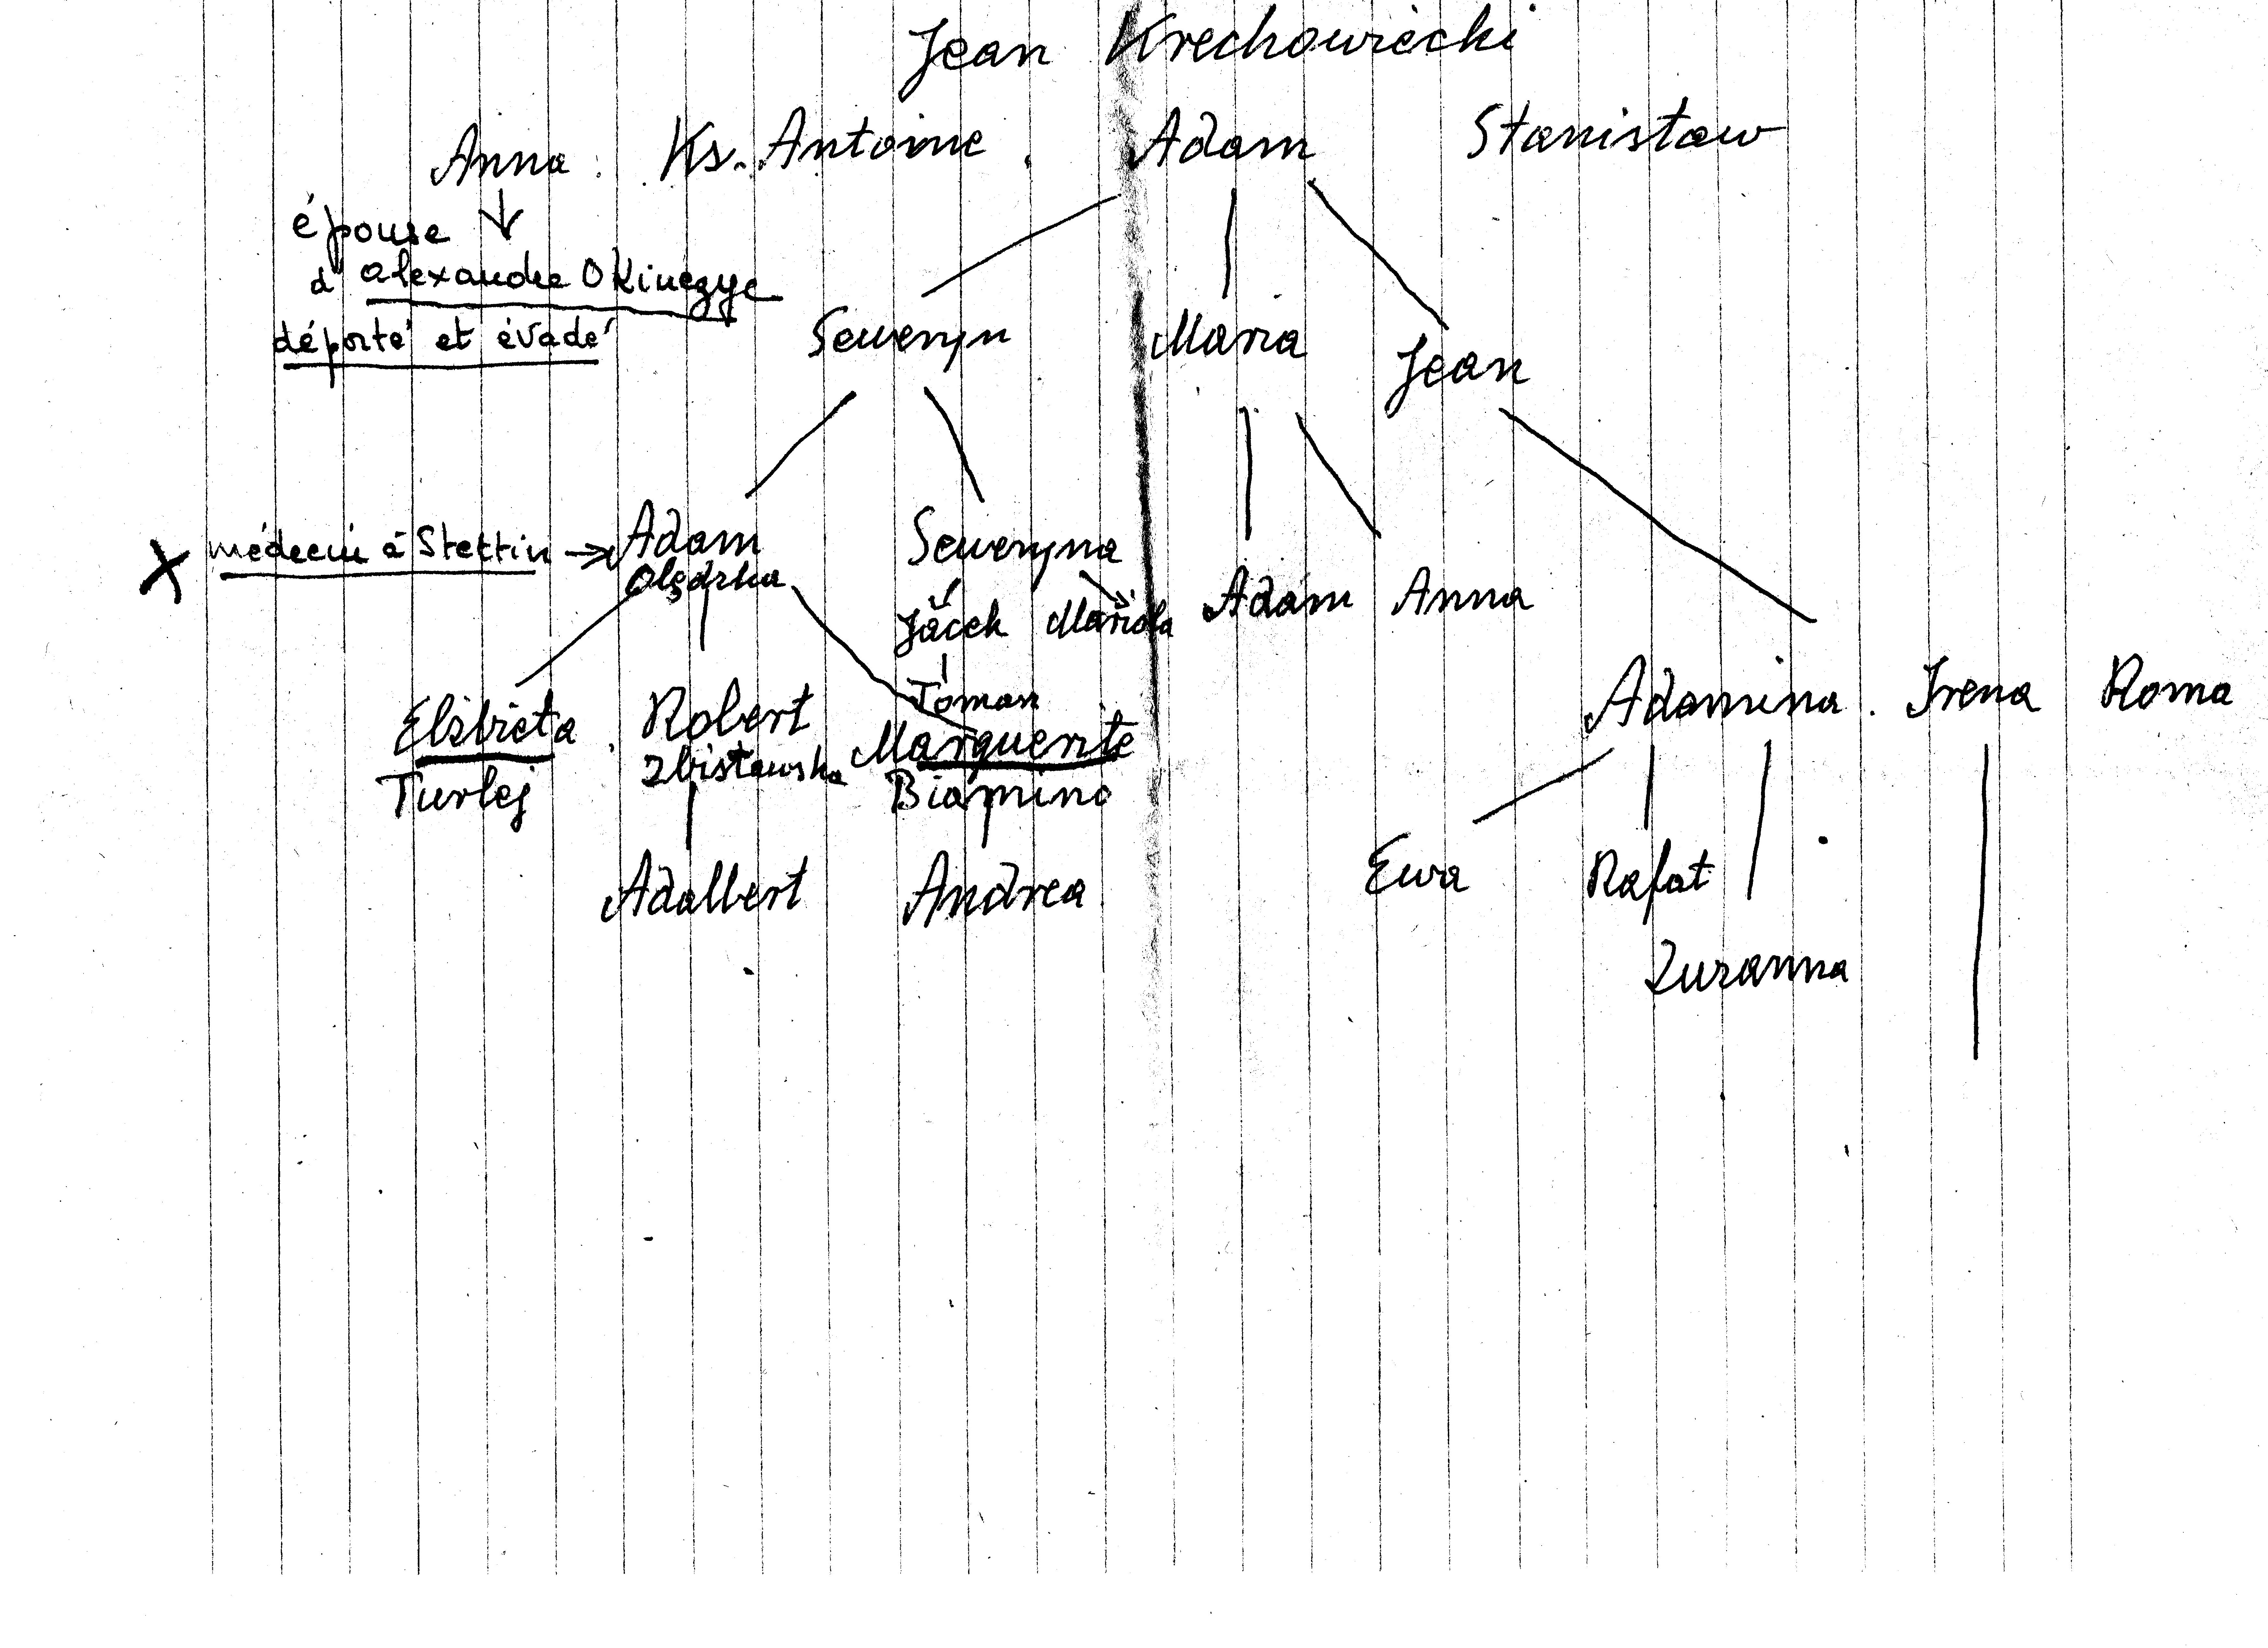 Jean Krechowiecki
Anna Ks. Antoine Adam Stanisław
épouse
d'alexandre OKinczyc
déporté et évadé
Seweryn Maria Jean
X médecin à Stettin → Adam Seweryna
Olędzka
Jacek Mariola Adam Anna
Toman
Elżbieta Robert Marguerite Adamina Irena Roma
Turlej Zbisławska Biamino
Adalbert Andrea Ewa Rafał
Zuzanna